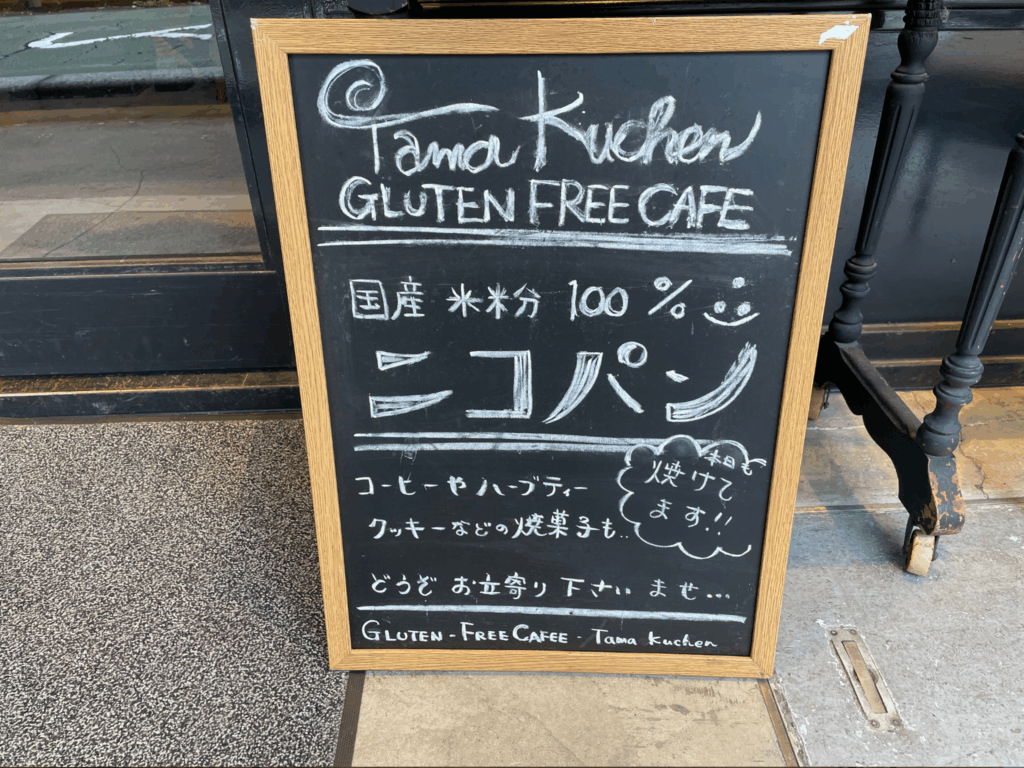 Tama Kuchen
GLUTEN FREE CAFE
国産 米米分 100%
ニコパン
本日も
焼けて
ます!!
コーヒーや ハーブティー
クッキーなどの焼菓子も..
どうぞ お立寄り下さいませ...
GLUTEN-FREE CAFEE-Tama Kuchen